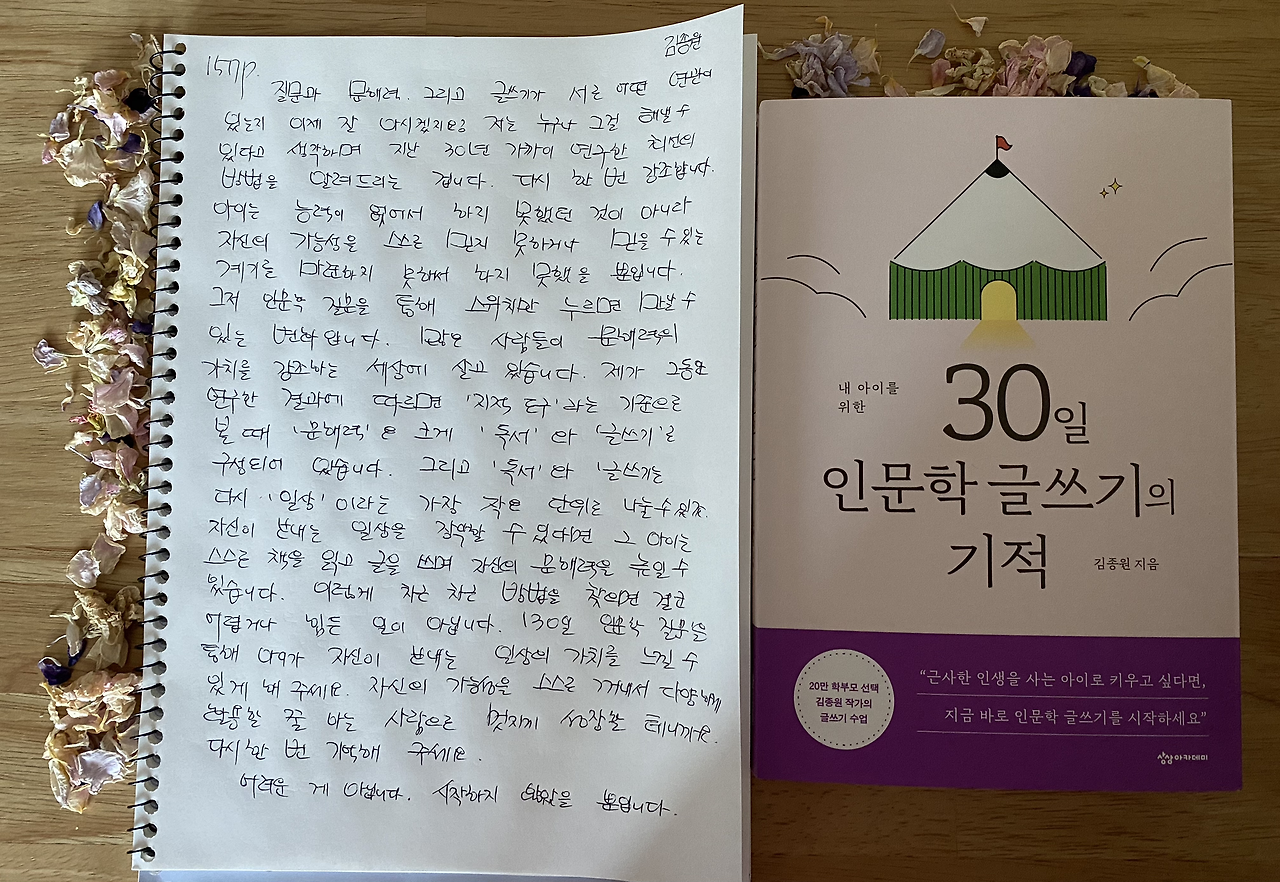 김종원
157p.
질문과 문해력. 그리고 글쓰기가 서로 어떤 연관이
있는지 이제 잘 아시겠지요? 저는 누구나 그걸 해낼 수
있다고 생각하며 지난 30년 가까이 연구한 최선의
방법을 알려드리는 겁니다. 다시 한 번 강조합니다.
아이는 능력이 없어서 하지 못했던 것이 아니라
자신의 가능성을 스스로 믿지 못하거나 믿을 수 있는
계기를 마련하지 못해서 하지 못했을 뿐입니다.
그저 인문학 질문을 통해 스위치만 누르면 만날 수
있는 변화입니다. 많은 사람들이 문해력의
가치를 강조하는 세상에 살고 있습니다. 제가 그동안
연구한 결과에 따르면 '지적 도구'라는 기준으로
볼 때 '문해력'은 크게 '독서'와 '글쓰기'로
구성되어 있습니다. 그리고 '독서'와 '글쓰기는
다시 '일상'이라는 가장 작은 단위로 나눌 수 있죠.
자신이 보내는 일상을 장악할 수 있다면 그 아이는
스스로 책을 읽고 글을 쓰며 자신의 문해력을 높일 수
있습니다. 이렇게 차근 차근 방법을 찾으면 결코
어렵거나 힘든 일이 아닙니다. '30일 인문학 질문'을
통해 아이가 자신이 보내는 일상의 가치를 느낄 수
있게 해 주세요. 자신의 가능성을 스스로 꺼내서 다양하게
활용할 줄 아는 사람으로 멋지게 성장할 테니까요.
다시 한 번 기억해 주세요.
어려운 게 아닙니다. 시작하지 않았을 뿐입니다.
내 아이를
위한
30일
인문학 글쓰기의
기적
김종원 지음
20만 학부모 선택
김종원 작가의
글쓰기 수업
“근사한 인생을 사는 아이로 키우고 싶다면,
지금 바로 인문학 글쓰기를 시작하세요”
상상아카데미